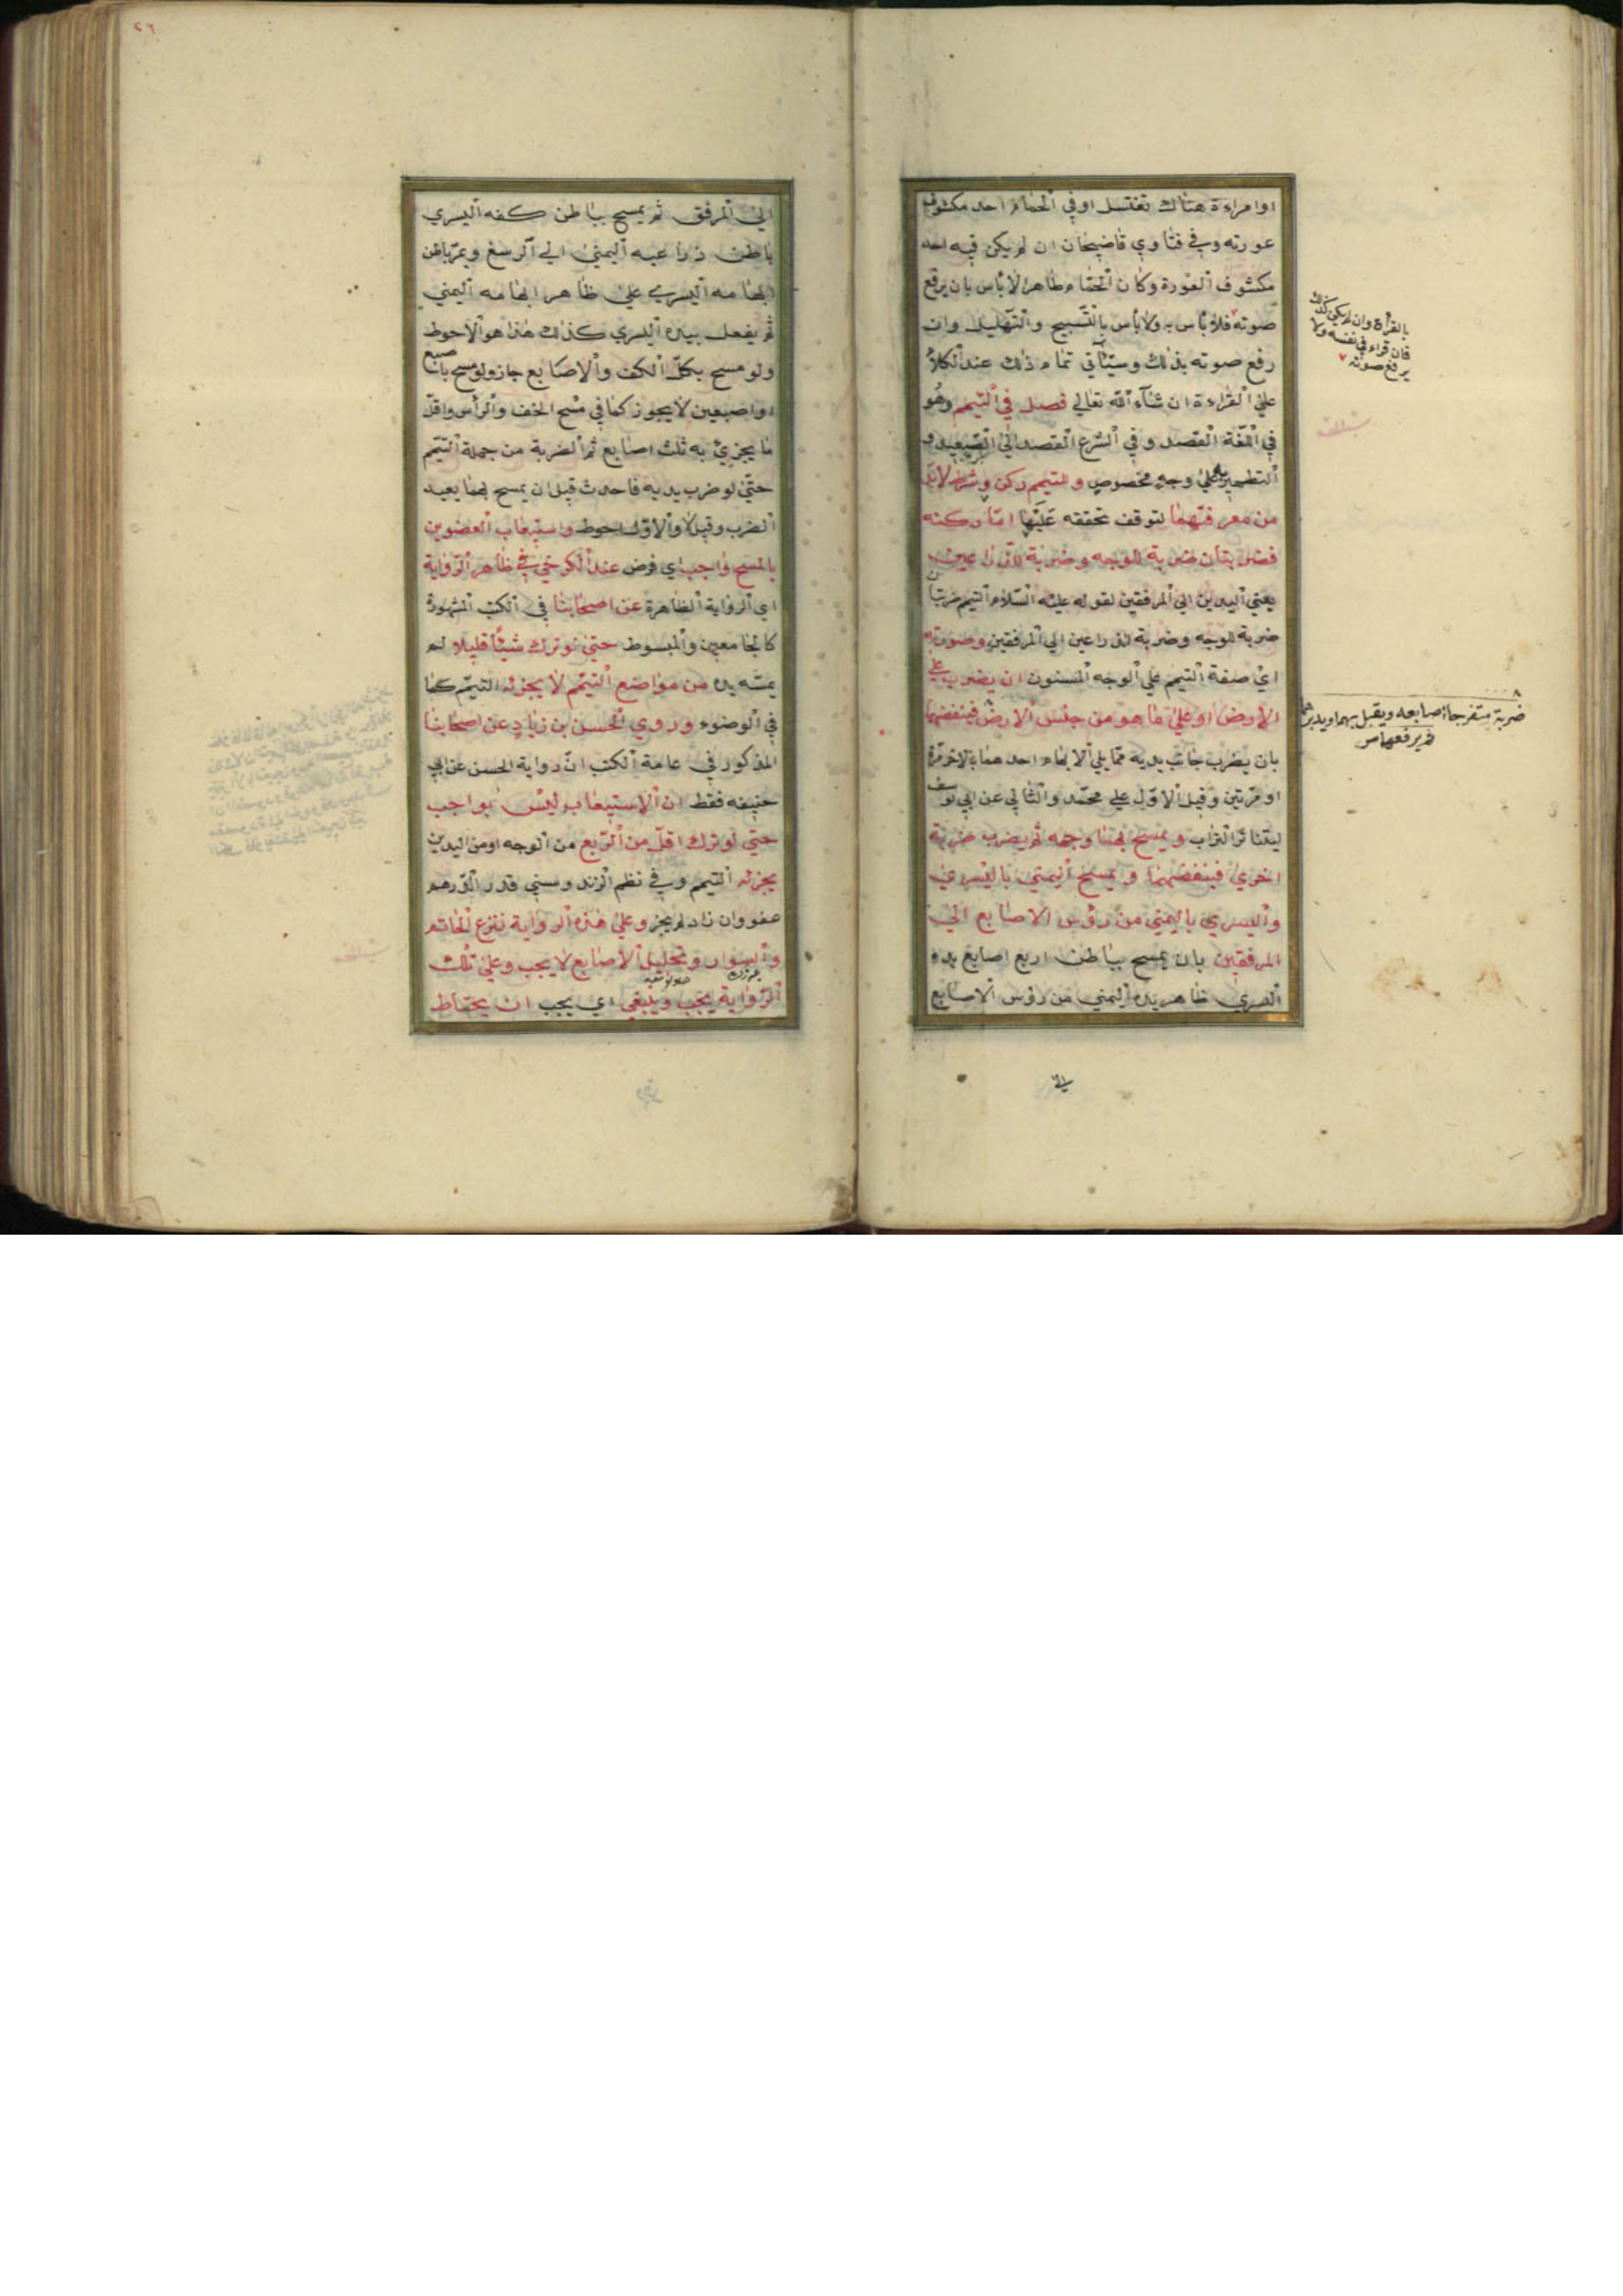 اوامراءة هناك تغتسل اوفي الحمام احد مكشوف
عورته وفي فتاوي قاضيخان ان لم يكن فيه احد
مكشوف العورة وكان الحمام طاهرا لابأس بان يرفع
صوته فلا بأس به ولا بأس بالتسبيح والتهليل وان
رفع صوته بذلك وسيأتي تمام ذلك عند الكلام
علي القراءة ان شآء الله تعالي فصل في التيمم وهو
في اللغة القصد وفي الشرع القصد الي الصعيد و
التطهير به علي وجه مخصوص وللتيمم ركن وشرط لابد
من معرفتهما لتوقف تحققه عليها اما ركنه
فضربتان ضربة للوجه وضربة للذراعين
يعني اليدين الي المرفقين لقوله عليه السلام التيمم ضربتان
ضربة للوجه وضربة للذراعين الي المرفقين وصورته
اي صفة التيمم علي الوجه المسنون ان يضرب علي
الارض او علي ما هو من جنس الارض فينفضهما
بان يضرب جانب يديه مما يلي الابهام احدهما بالاخر مرة
او مرتين وقيل الاول علي محمد والثاني عن ابي يوسف
ليتناثر التراب ويمسح بهما وجهه ثم يضرب ضربة
اخري فينفضهما ويمسح اليمني باليسري
واليسري باليمني من رؤس الاصابع الي
المرفقين بان يمسح بباطن اربع اصابع يده
اليسري ظاهر يده اليمني من رؤس الاصابع
بالقراة وان لم يكن كذلك
فان قراء في نفسه ولا
يرفع صوته
ضربة منفرجا اصابعه ويقبل بهما ويدبر
ثم يرفعهما
٢٦
الي المرفق ثم يمسح بباطن كفه اليسري
باطن ذراعيه اليمني الي الرسغ ويمر باطن
ابهامه اليسري علي ظاهر ابهامه اليمني
ثم يفعل بيده اليسري كذلك هذا هو الاحوط
ولو مسح بكل الكف والاصابع جاز ولو مسح باصبع
او اصبعين لا يجوز كما في مسح الخف والرأس واقل
ما يجزئ به ثلث اصابع ثم الضربة من جملة التيمم
حتي لو ضرب يديه فاحدث قبل ان يمسح بهما يعيد
الضرب وقيل لا والاول احوط واستيعاب العضوين
بالمسح واجب اي فرض عند الكرخي في ظاهر الرواية
اي الرواية الظاهرة عن اصحابنا في الكتب المشهورة
كالجامعين والمبسوط حتي لو ترك شيئا قليلا لم
يمسه يده من مواضع التيمم لا يجزئه التيمم كما
في الوضوء وروي الحسن بن زياد عن اصحابنا
المذكور في عامة الكتب ان رواية الحسن عن ابي
حنيفه فقط ان الاستيعاب ليس بواجب
حتي لو ترك اقل من الربع من الوجه او من اليدين
يجزئه التيمم وفي نظم الزند ومسني قدر الدرهم
عفو وان زاد لم يجز وعلي هذه الرواية نزع الخاتم
والسوار وتخليل الاصابع لا يجب وعلي تلك
الرواية يجب وينبغي اي يجب ان يحتاط